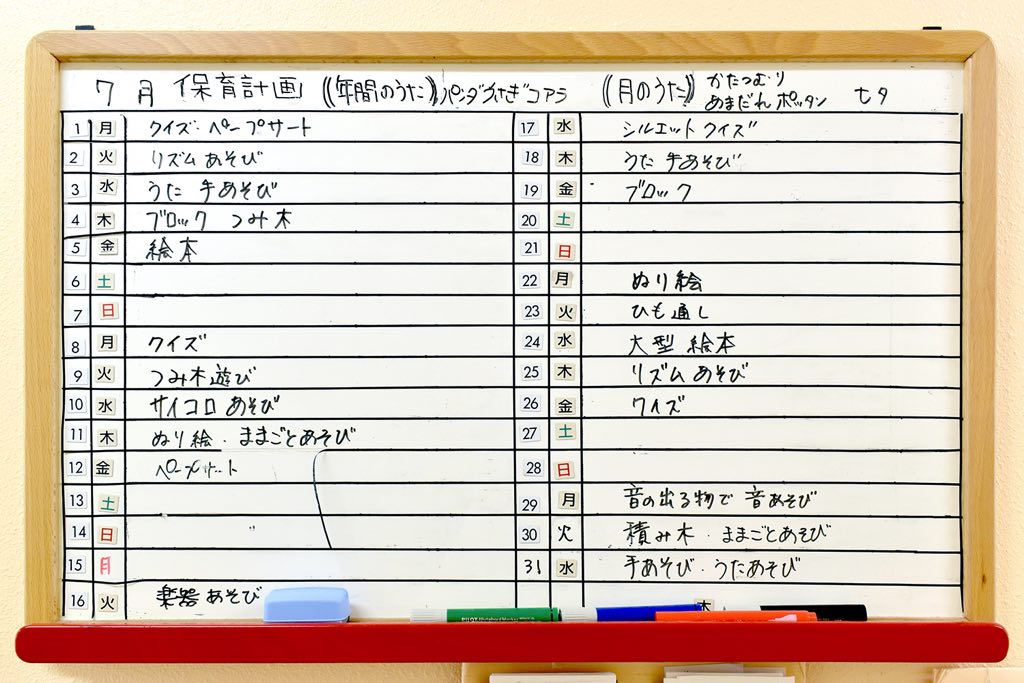 7月 保育計画 《年間のうた》パンダうさぎコアラ 《月のうた》かたつむり あまだれポッタン 七夕
1 月 クイズ・ペープサート
2 火 リズムあそび
3 水 うた 手あそび
4 木 ブロック つみ木
5 金 絵本
6 土
7 日
8 月 クイズ
9 火 つみ木遊び
10 水 サイコロあそび
11 木 ぬり絵・ままごとあそび
12 金 ペープサート
13 土
14 日
15 月
16 火 楽器あそび
17 水 シルエットクイズ
18 木 うた 手あそび
19 金 ブロック
20 土
21 日
22 月 ぬり絵
23 火 ひも通し
24 水 大型 絵本
25 木 リズムあそび
26 金 クイズ
27 土
28 日
29 月 音の出る物で 音あそび
30 火 積み木・ままごとあそび
31 水 手あそび・うたあそび
木
PILOT